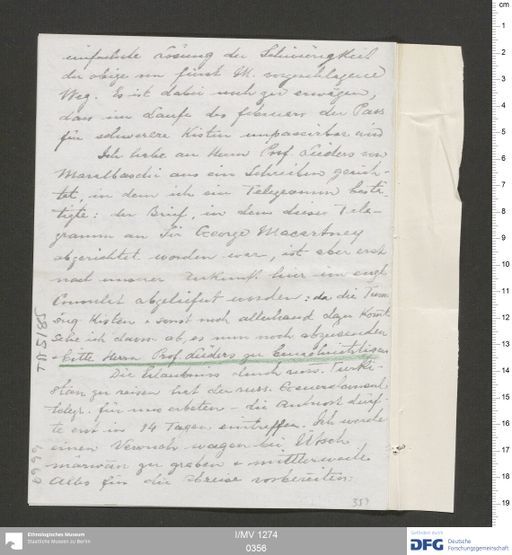 einfachste Lösung der Schwierigkeit
der obige von fürst M. vorgeschlagene
Weg. Es ist dabei noch zu erwägen,
dass im Laufe des februars der Pass
für schwerere Kisten unpassierbar wird
Ich habe an Herrn Prof. Lüders von
Maralbaschi aus ein Schreiben gerich-
tet, in dem ich ein Telegramm bestä-
tigte: der Brief, in dem dieses Tele-
gramm an Sir George Macartney
abgerichtet worden war, ist aber erst
nach unserer Ankunft hier im engl
Consulat abgeliefert worden: da die
Kisten + sonst noch allerhand dazu
ich davon ab, es nun noch abzusenden
+ bitte Herrn Prof. Lüders zu benachrichtigen
Die Erlaubniss durch russ. Turki-
stan zu reisen hat der russ. Generalconsul
telegr. für uns erbeten – die Antwort dürf-
te erst in 14 Tagen eintreffen. Ich werde
einen Versuch wagen bei
zu graben + mittlerweile
Alles für die Abreise vorbereiten.
353
I/MV 1274
0356
Ethnologisches Museum
Staatliche Museen zu Berlin
Gefördert durch
DFG Deutsche
Forschungsgemeinschaft
cm
1
2
3
4
5
6
7
8
9
10
11
12
13
14
15
16
17
18
19